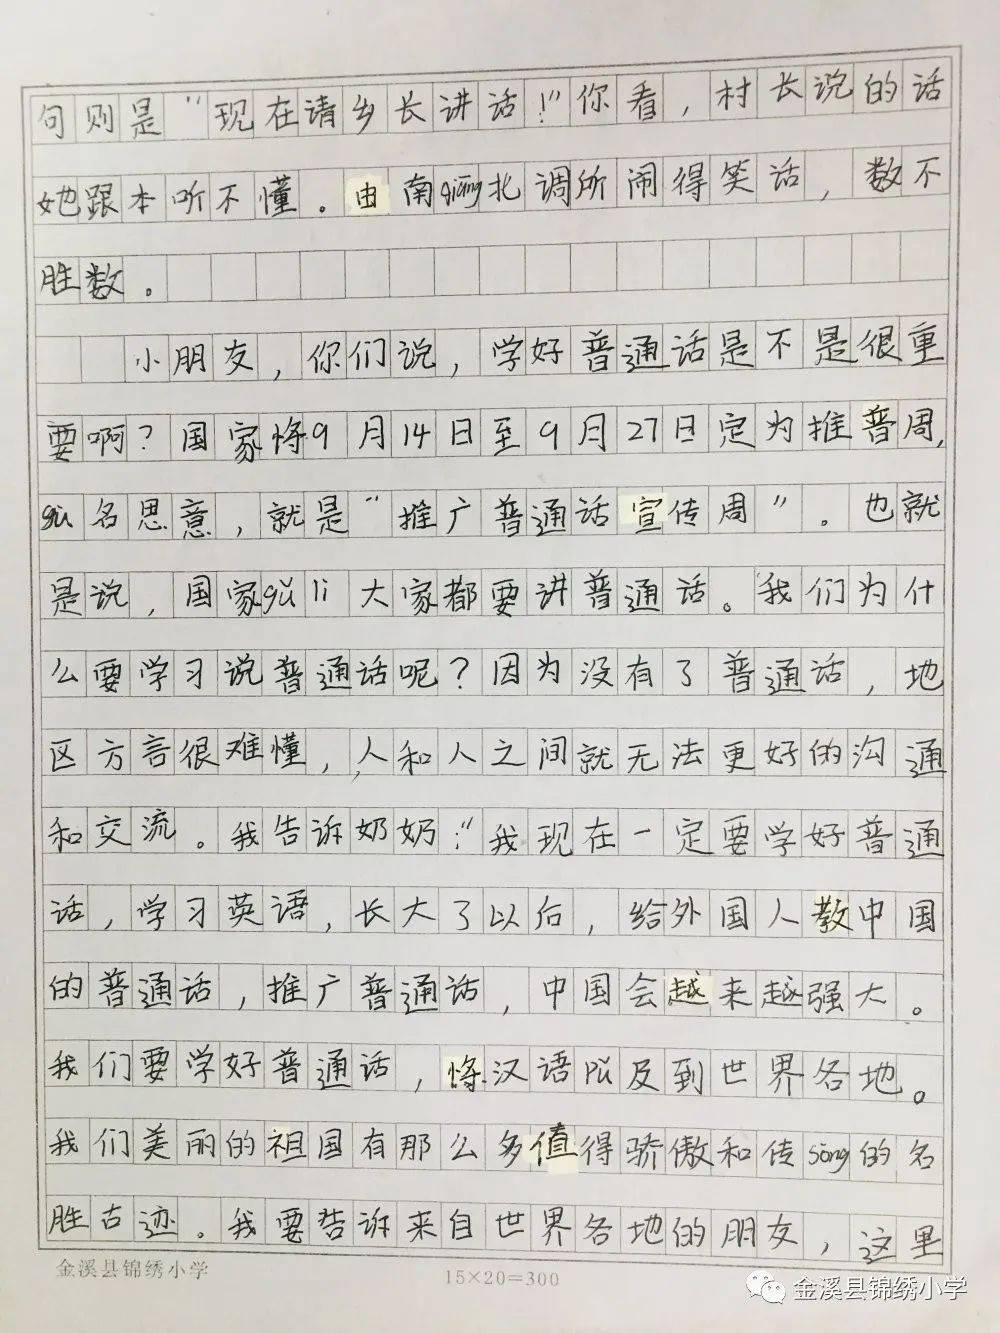 句则是“现在请乡长讲话！”你看，村长说的话
她跟本听不懂。由南qiāng北调所闹得笑话，数不
胜数。
小朋友，你们说，学好普通话是不是很重
要啊？国家将9月14日至9月27日定为推普周，
gù名思意，就是“推广普通话宣传周”。也就
是说，国家gǔ lì大家都要讲普通话。我们为什
么要学习说普通话呢？因为没有了普通话，地
区方言很难懂，人和人之间就无法更好的沟通
和交流。我告诉奶奶：“我现在一定要学好普通
话，学习英语，长大了以后，给外国人教中国
的普通话，推广普通话，中国会越来越强大。
我们要学好普通话，将汉语pǔ及到世界各地。
我们美丽的祖国有那么多值得骄傲和传sòng的名
胜古迹。我要告诉来自世界各地的朋友，这里
金溪县锦绣小学
15×20=300
金溪县锦绣小学